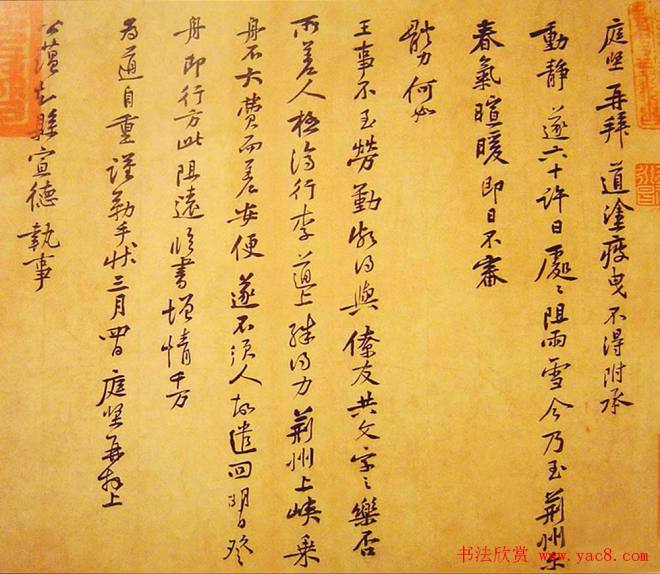 庭坚再拜道塗疲曳不得附承
動静遂六十許日處〻阻雨雪今乃至荆州
春氣暄暖即日不審
體力何如
王事不至勞勤頗得與僚友共文字之樂否
所差人極濟行李道上殊得力荆州上峽乘
舟不大費而差安便遂不須人故遣回明日登
舟即行方此阻遠臨書增情千万
为道自重謹勒手状三月四日庭坚再拜上
公藴知縣宣德執事
书法欣赏 www.yac8.com